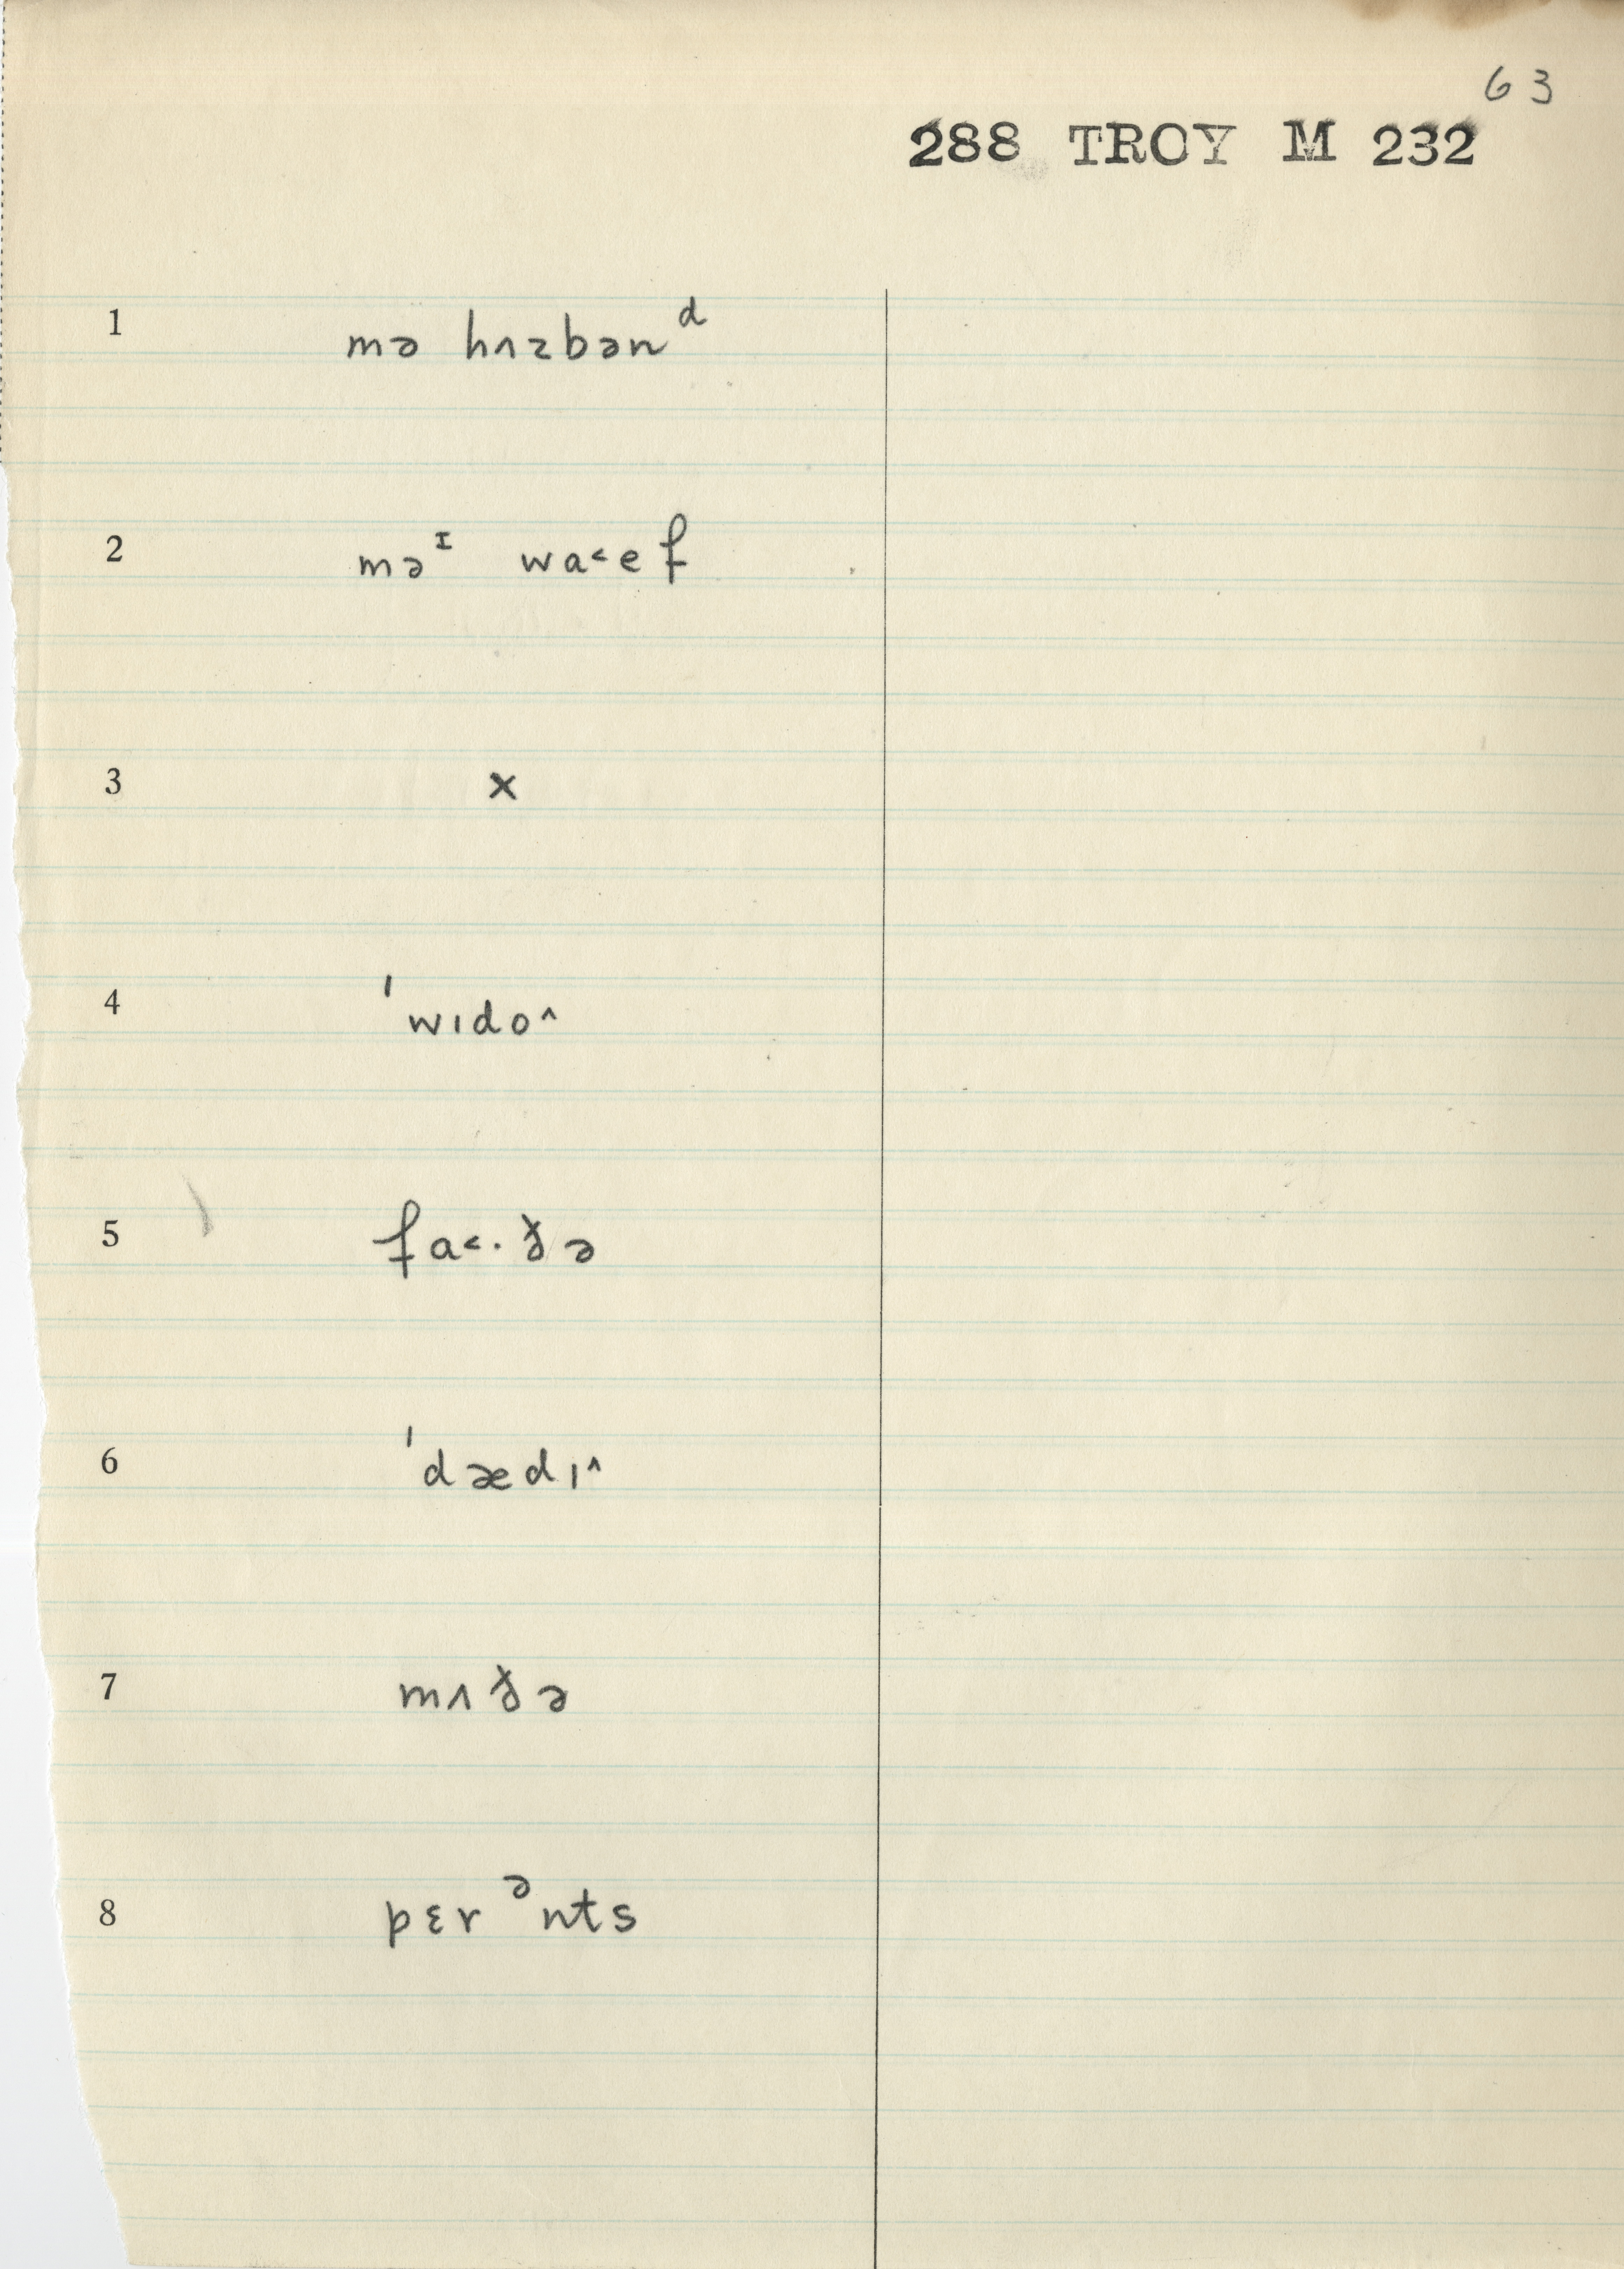 63
288 TROY M 232
1 mə hʌzbənᵈ
2 məᴵ wa˂ef
3 x
4 ˈwıdo˄
5 fa˂·ðə
6 ˈdædı˄
7 mʌðə
8 pɛrᵊnts